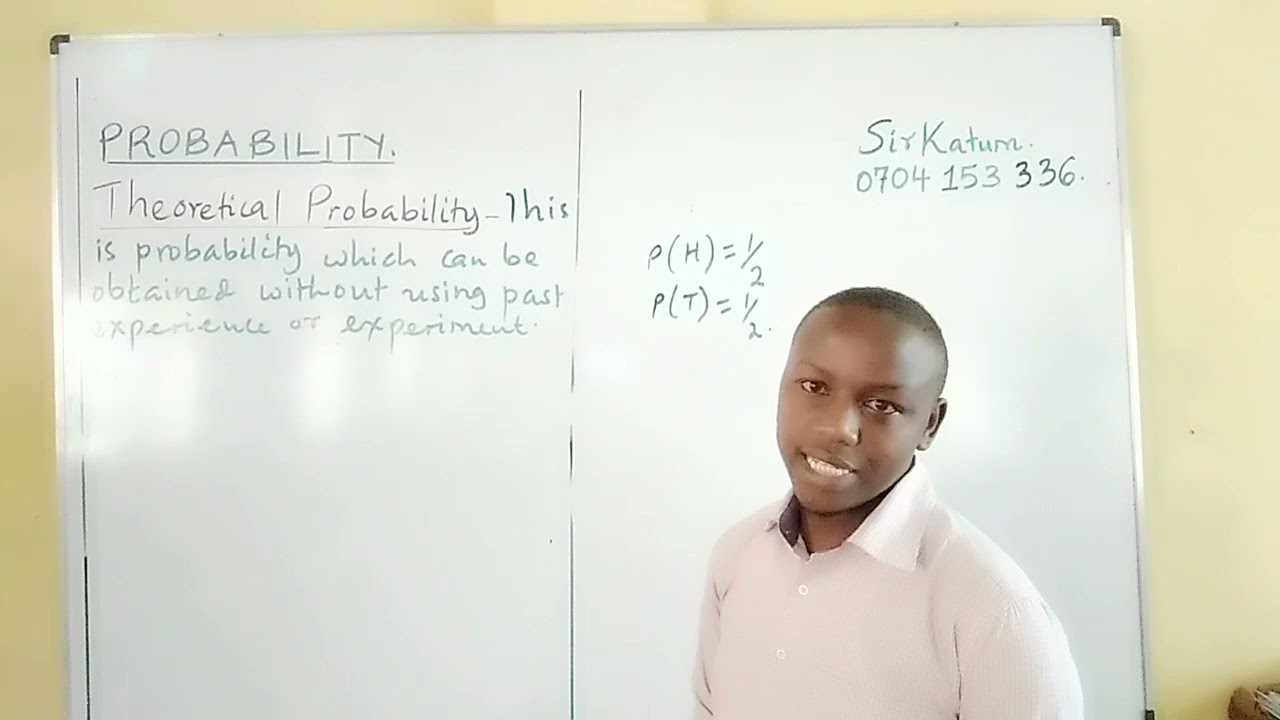 PROBABILITY.
Theoretical Probability - This
is probability which can be
obtained without using past
experience or experiment.
P(H) = 1/2
P(T) = 1/2.
Sir Katum.
0704 153 336.